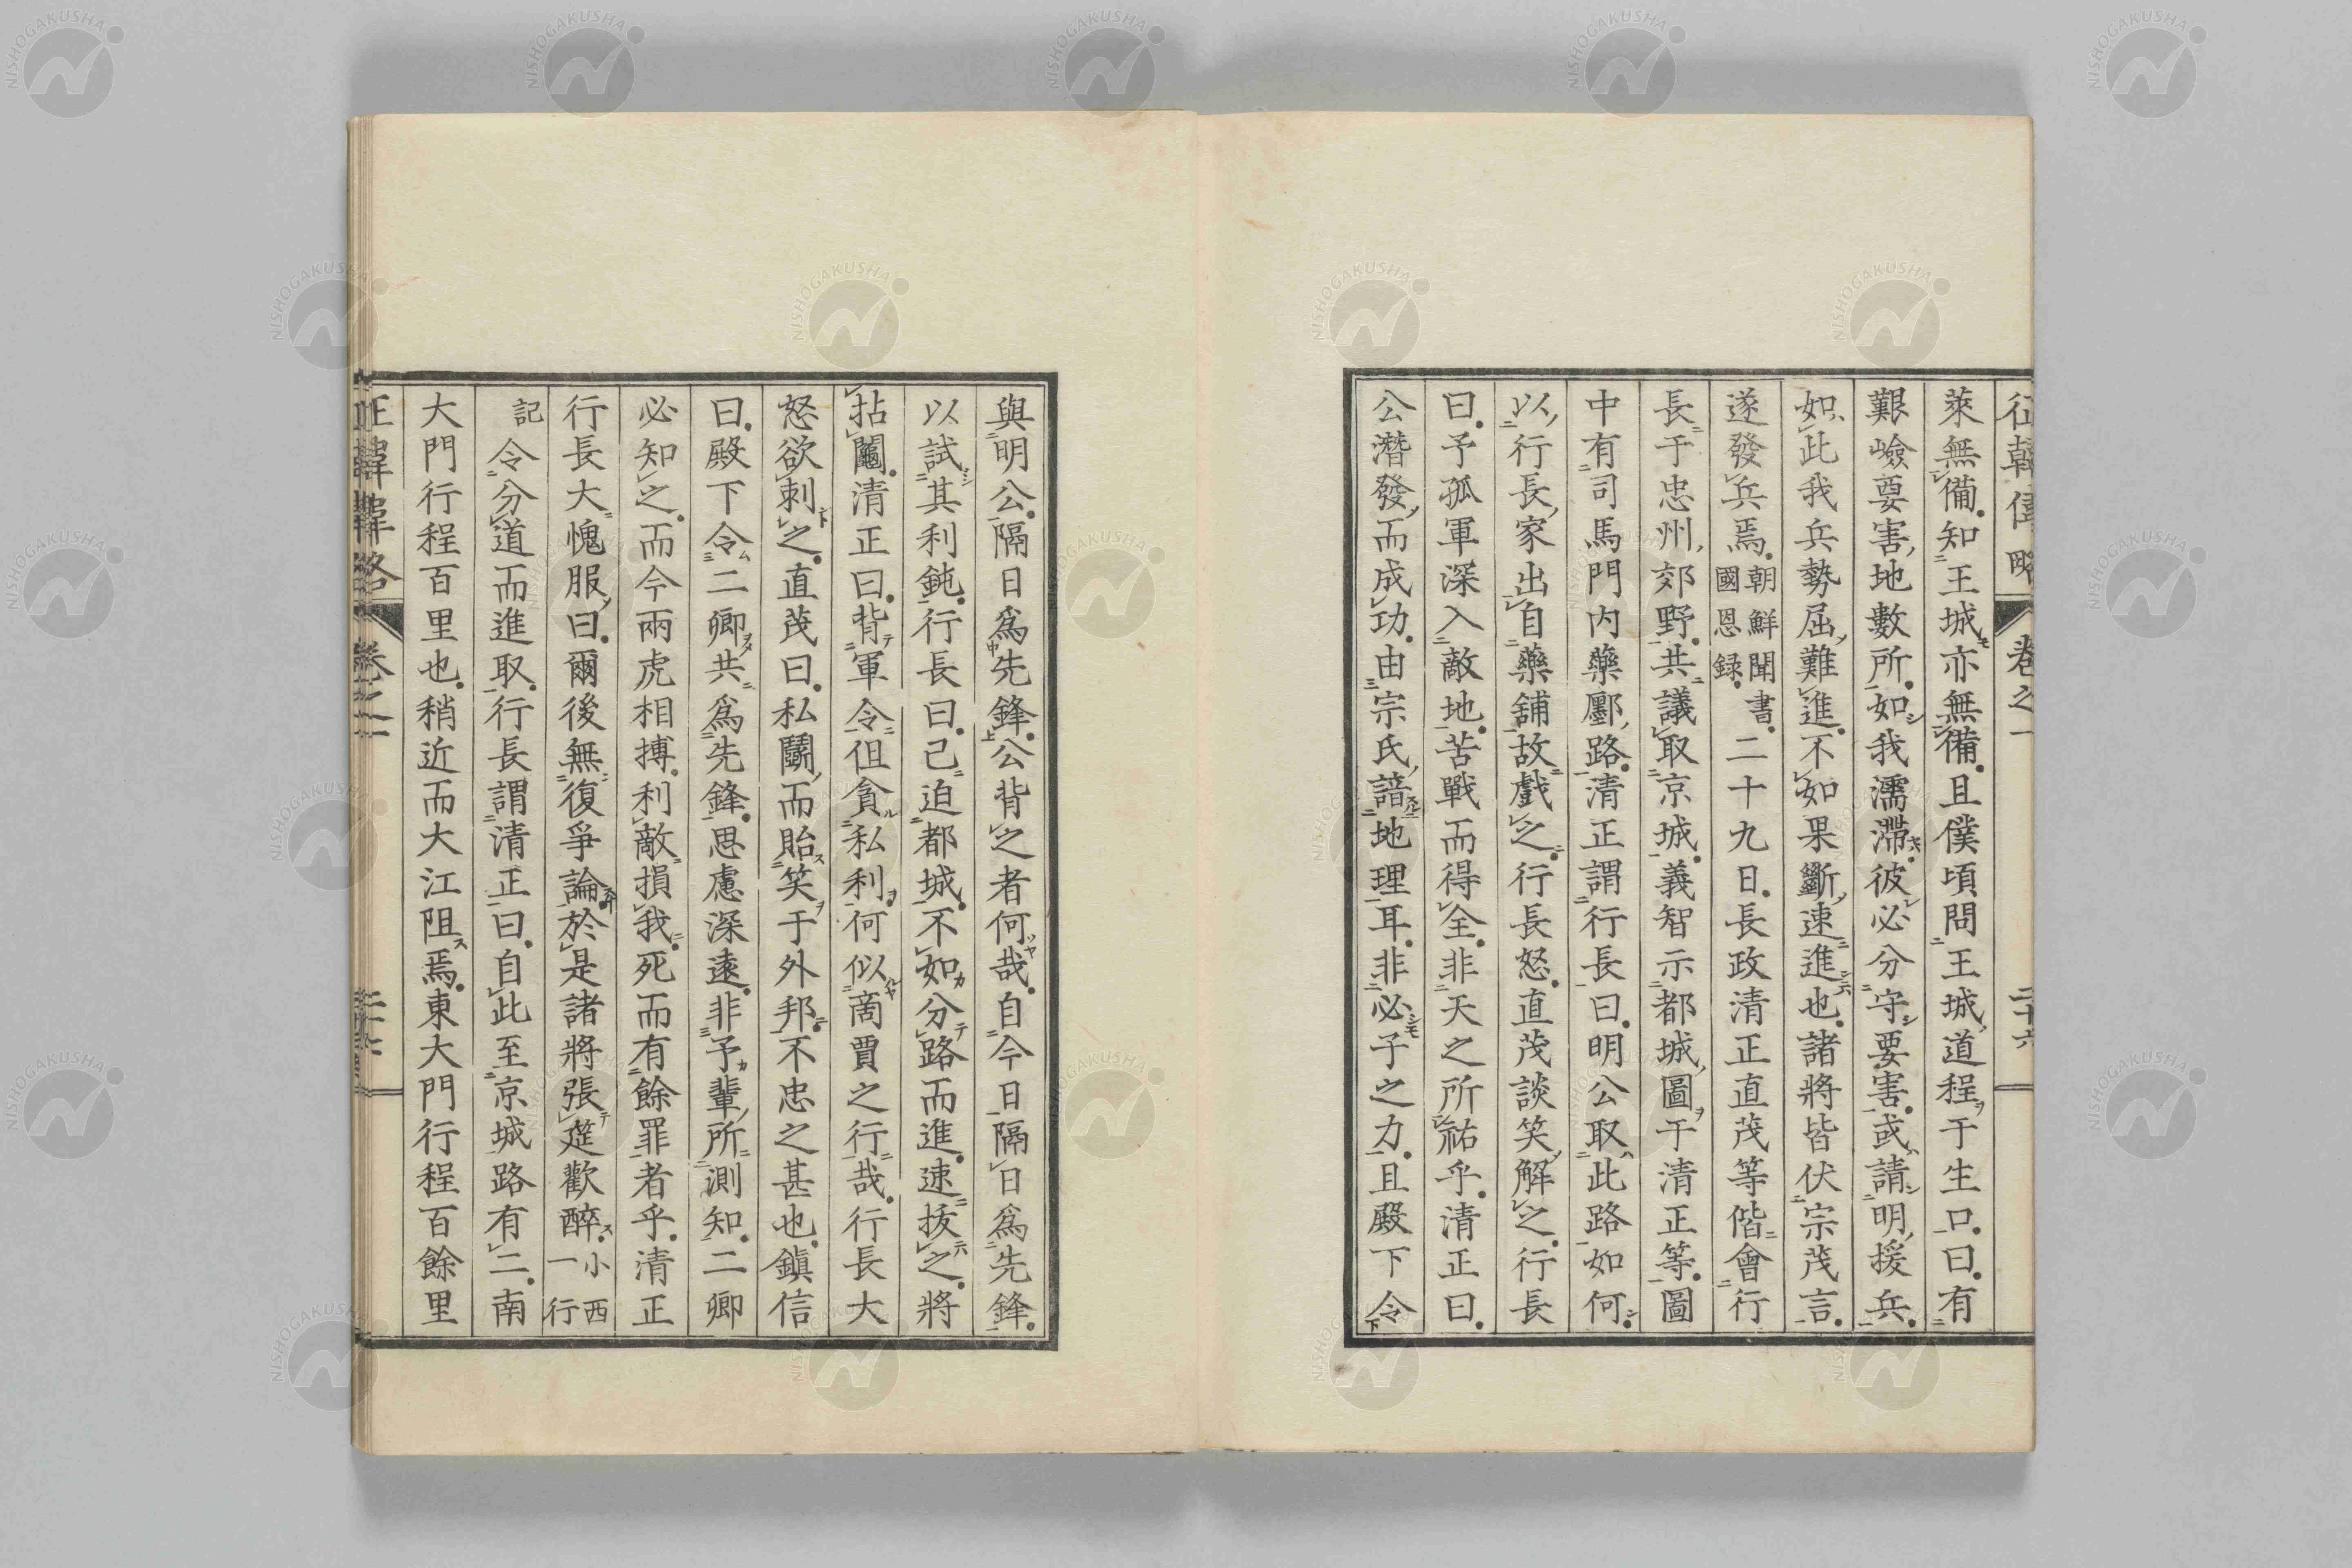 征韓偉略 卷之一 二十六
萊無備。知王城亦無備。且僕頃問王城道程于生口。曰。有
艱嶮要害地數所。如我濡滯。彼必分守要害。或請明援兵。
如此我兵勢屈難進。不如果斷速進也。諸將皆伏宗茂言。
遂發兵焉。朝鮮聞書。國恩録。二十九日。長政清正直茂等偕會行
長于忠州郊野。共議取京城。義智示都城圖于清正等。圖
中有司馬門内藥鄽路。清正謂行長曰。明公取此路如何。
以行長家出自藥舖故戲之。行長怒。直茂談笑解之。行長
曰。予孤軍深入敵地。苦戰而得全。非天之所祐乎。清正曰。
公潛發而成功。由宗氏諳地理耳。非必子之力。且殿下令
與明公。隔日爲先鋒。公背之者何哉。自今日隔日爲先鋒。
以試其利鈍。行長曰。己迫都城。不如分路而進。速拔之。將
拈鬮。清正曰。背軍令但貪私利。何似商賈之行哉。行長大
怒欲刺之。直茂曰。私鬪而貽笑于外邦。不忠之甚也。鎭信
曰。殿下令二卿共爲先鋒。思慮深遠。非予輩所測知。二卿
必知之。而今兩虎相搏。利敵損我。死而有餘罪者乎。清正
行長大愧服曰。爾後無復爭論於是諸將張筵歡醉。小西一行
記 令分道而進取。行長謂清正曰。自此至京城路有二。南
大門行程百里也。稍近而大江阻焉。東大門行程百餘里
卷之一